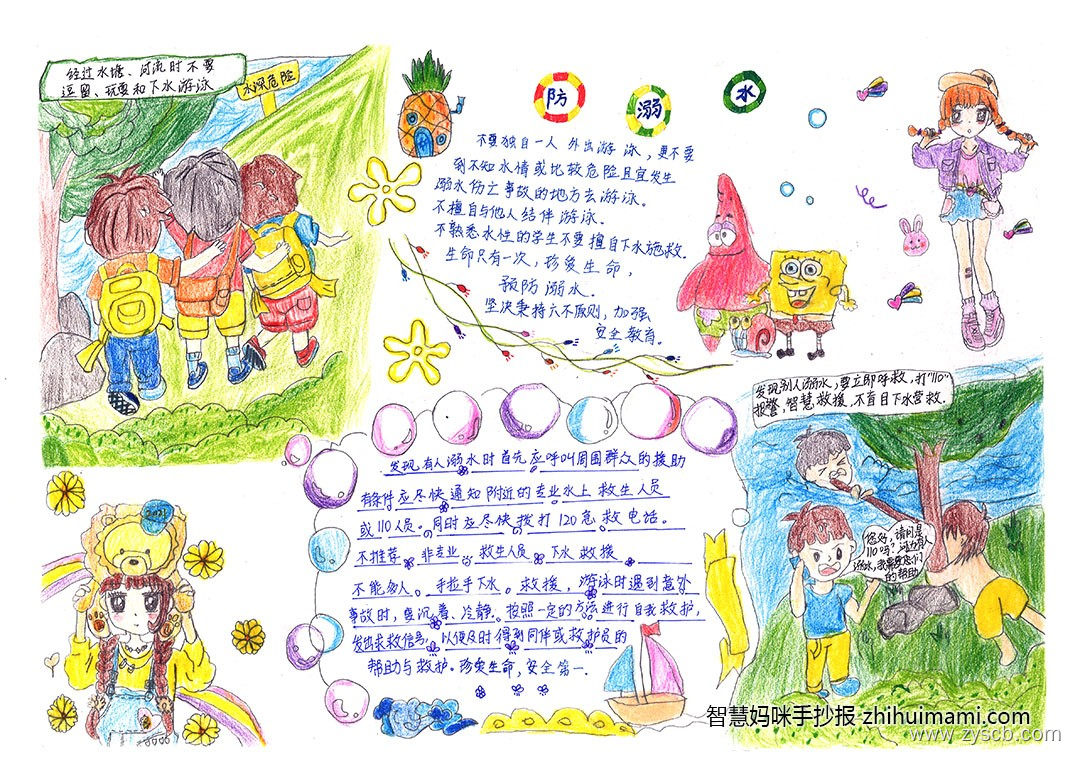 经过水塘、河流时不要
逗留、玩耍和下水游泳
水深危险
防溺水
不要独自一人外出游泳，更不要
到不知水情或比较危险且宜发生
溺水伤亡事故的地方去游泳。
不擅自与他人结伴游泳.
不熟悉水性的学生不要擅自下水施救.
生命只有一次，珍爱生命，
预防溺水.
坚决秉持六不原则，加强
安全教育.
发现别人溺水，要立即呼救，打"110"
报警，智慧救援，不盲目下水营救.
发现有人溺水时首先应呼叫周围群众的援助
有条件应尽快通知附近的专业水上救生人员
或110人员。同时应尽快拨打120急救电话。
不推荐非专业救生人员下水救援
不能多人手拉手下水。救援，游泳时遇到意外
事故时，要沉着、冷静。按照一定的方法进行自我救护，
发出求救信号，以便及时得到同伴或救护员的
帮助与救护。珍爱生命，安全第一.
您好，请问是
110吗？河边有人
溺水，我需要您们
的帮助
2021
智慧妈咪手抄报 zhihuimami.com
www.zyscb.com